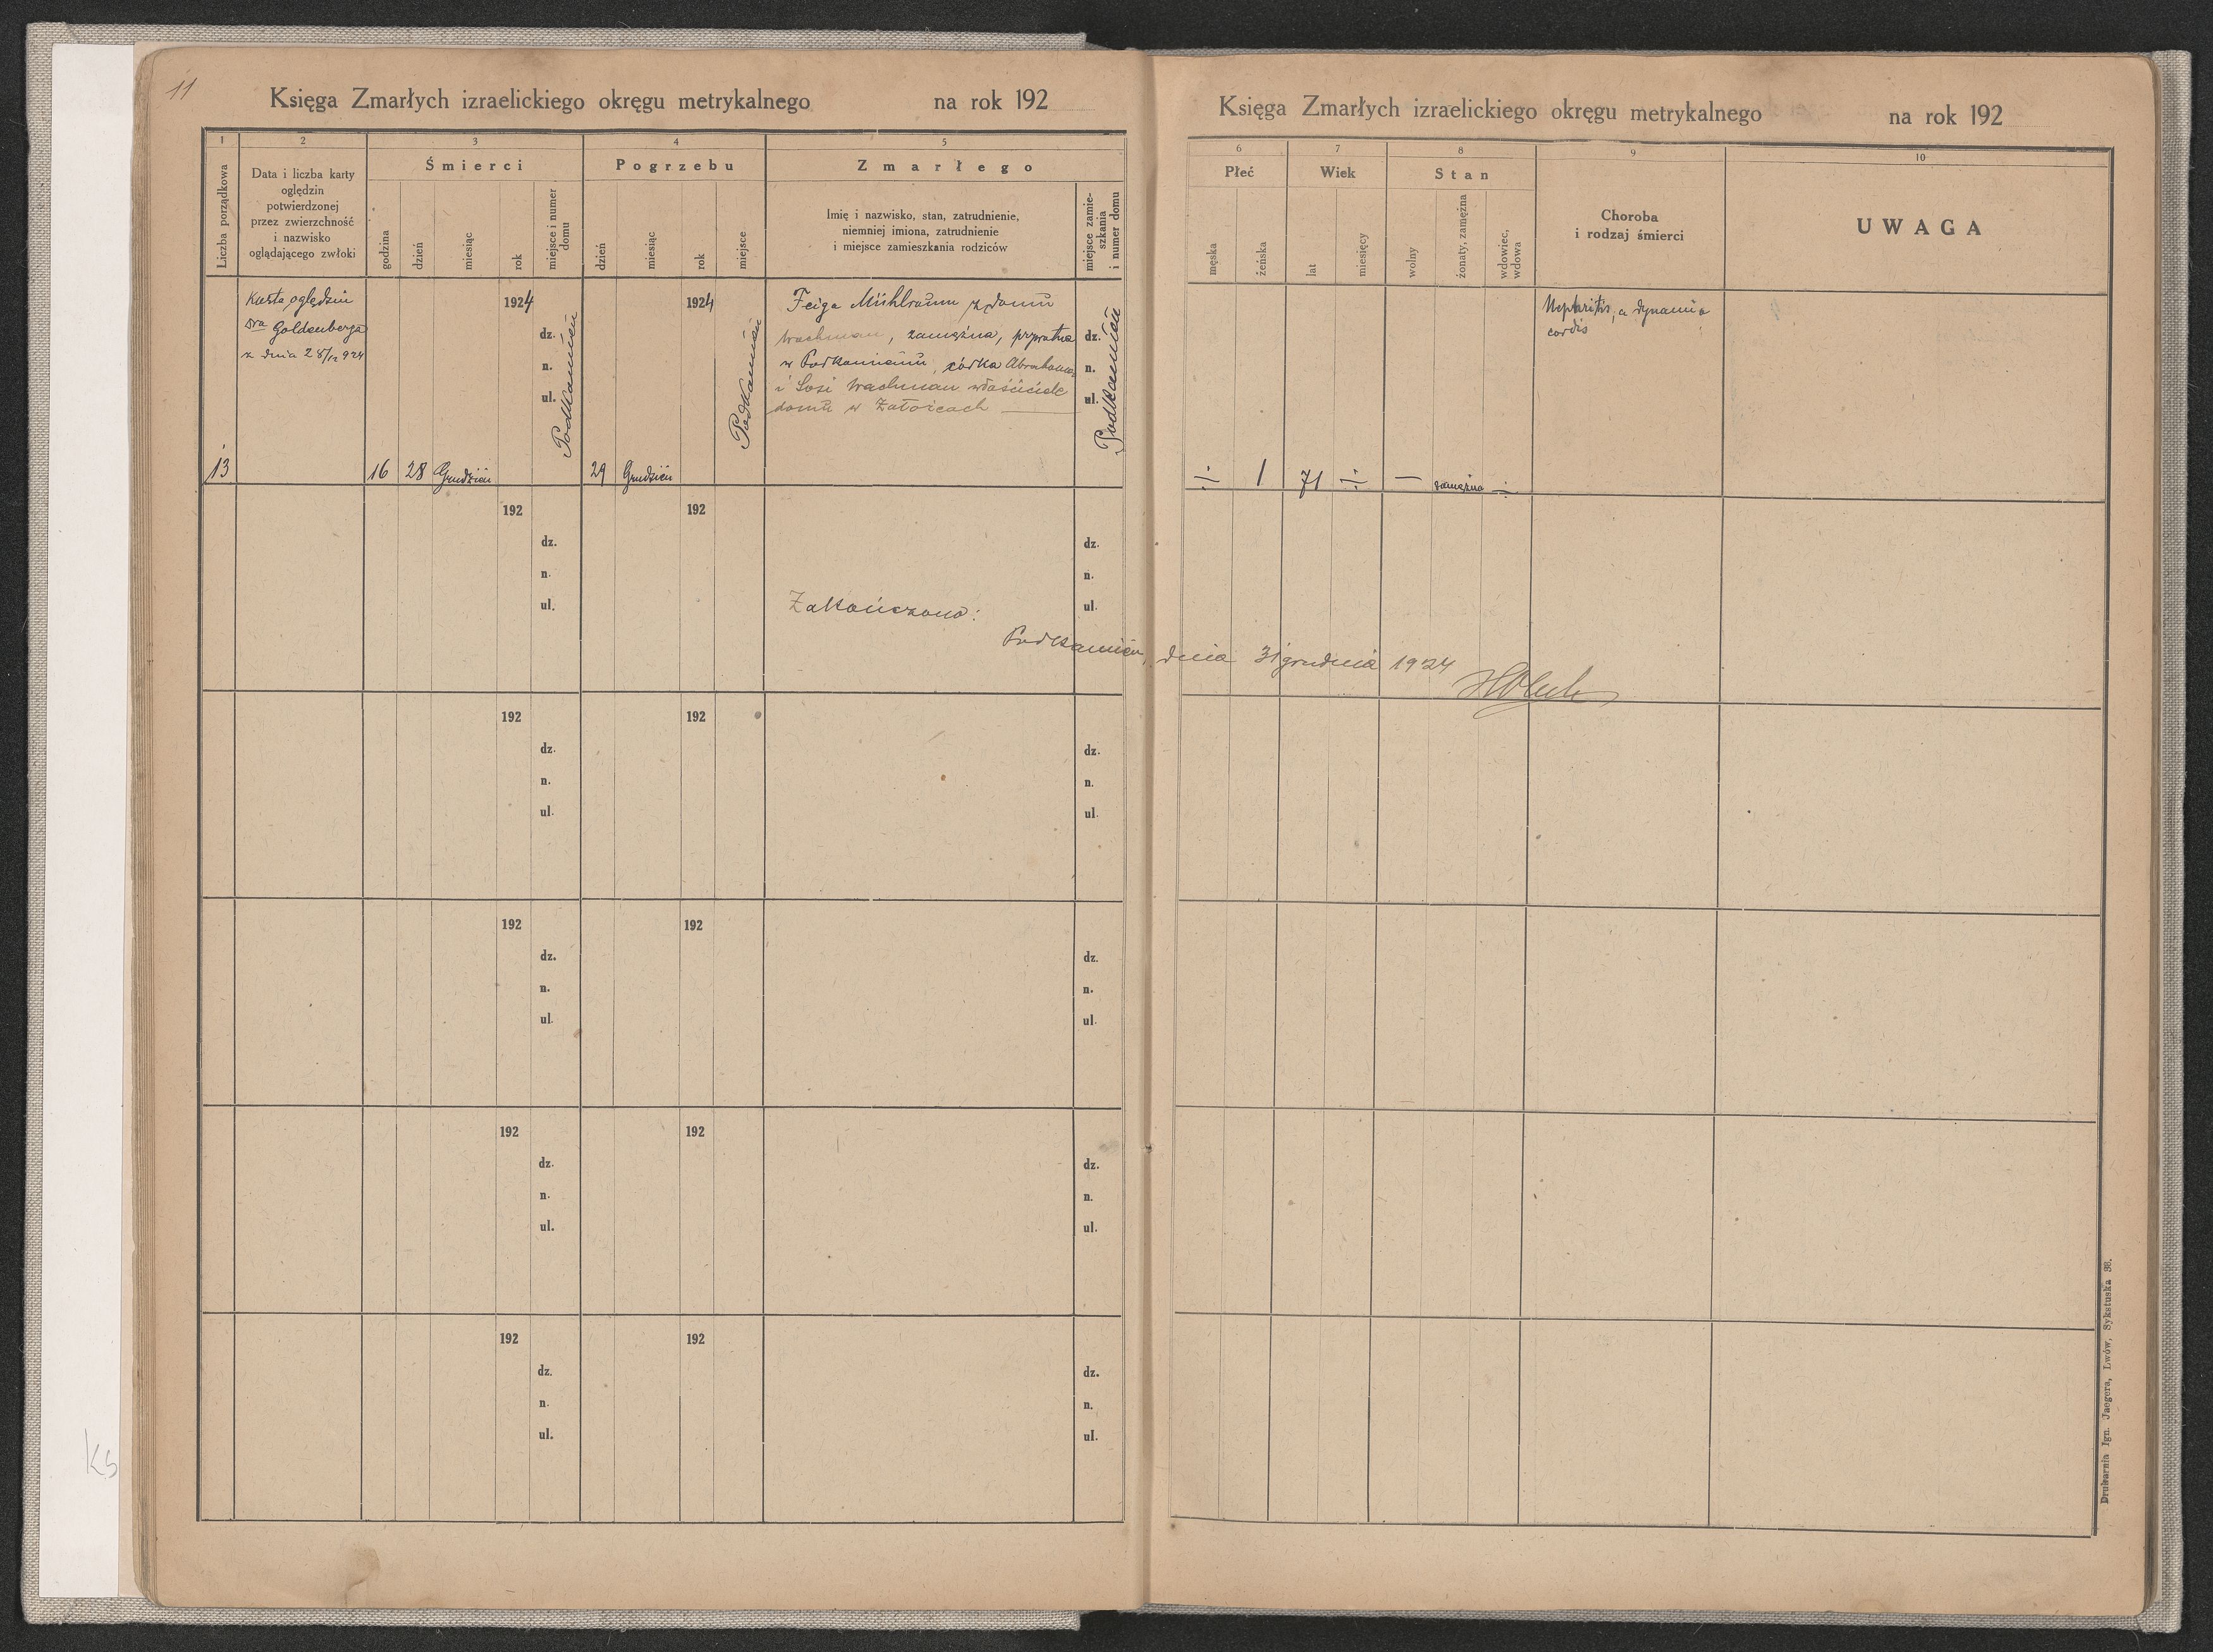 11
Księga Zmarłych izraelickiego okręgu metrykalnego na rok 192
1 2 3 4 5
Liczba porządkowa
Data i liczba karty
oględzin
potwierdzonej
przez zwierzchność
i nazwisko
oglądającego zwłoki
Śmierci
godzina
dzień
miesiąc
rok
miejsce i numer
domu
Pogrzebu
dzień
miesiąc
rok
miejsce
Zmarłego
Imię i nazwisko, stan, zatrudnienie,
niemniej imiona, zatrudnienie
i miejsce zamieszkania rodziców
miejsce zamie-
szkania
i numer domu
13
Karta oględzin
dra Goldenberga
z dnia 28/12 924
16 28 Grudzień
1924
dz.
n.
ul.
Podkamień
29 Grudzień
1924
Podkamień
Feiga Mühlraum z domu
Wachman, zamężna, prywatna
w Podkamieniu, córka Abrahama
i Sosi Wachman właściciele
domu w Załoźcach
dz.
n.
ul.
Podkamień
192 192
dz. dz.
n. n.
ul. ul.
Zakończono:
Podkamień, dnia 31 grudnia 1924
192 192
dz. dz.
n. n.
ul. ul.
192 192
dz. dz.
n. n.
ul. ul.
192 192
dz. dz.
n. n.
ul. ul.
192 192
dz. dz.
n. n.
ul. ul.
Księga Zmarłych izraelickiego okręgu metrykalnego na rok 192
6 7 8 9 10
Płeć
męska
żeńska
Wiek
lat
miesięcy
Stan
wolny
żonaty, zamężna
wdowiec,
wdowa
Choroba
i rodzaj śmierci
UWAGA
÷ 1 71 ÷ — zamężna ÷
Nephritis, adynamia
cordis
Drukarnia Ign. Jaegera, Lwów, Sykstuska 38.